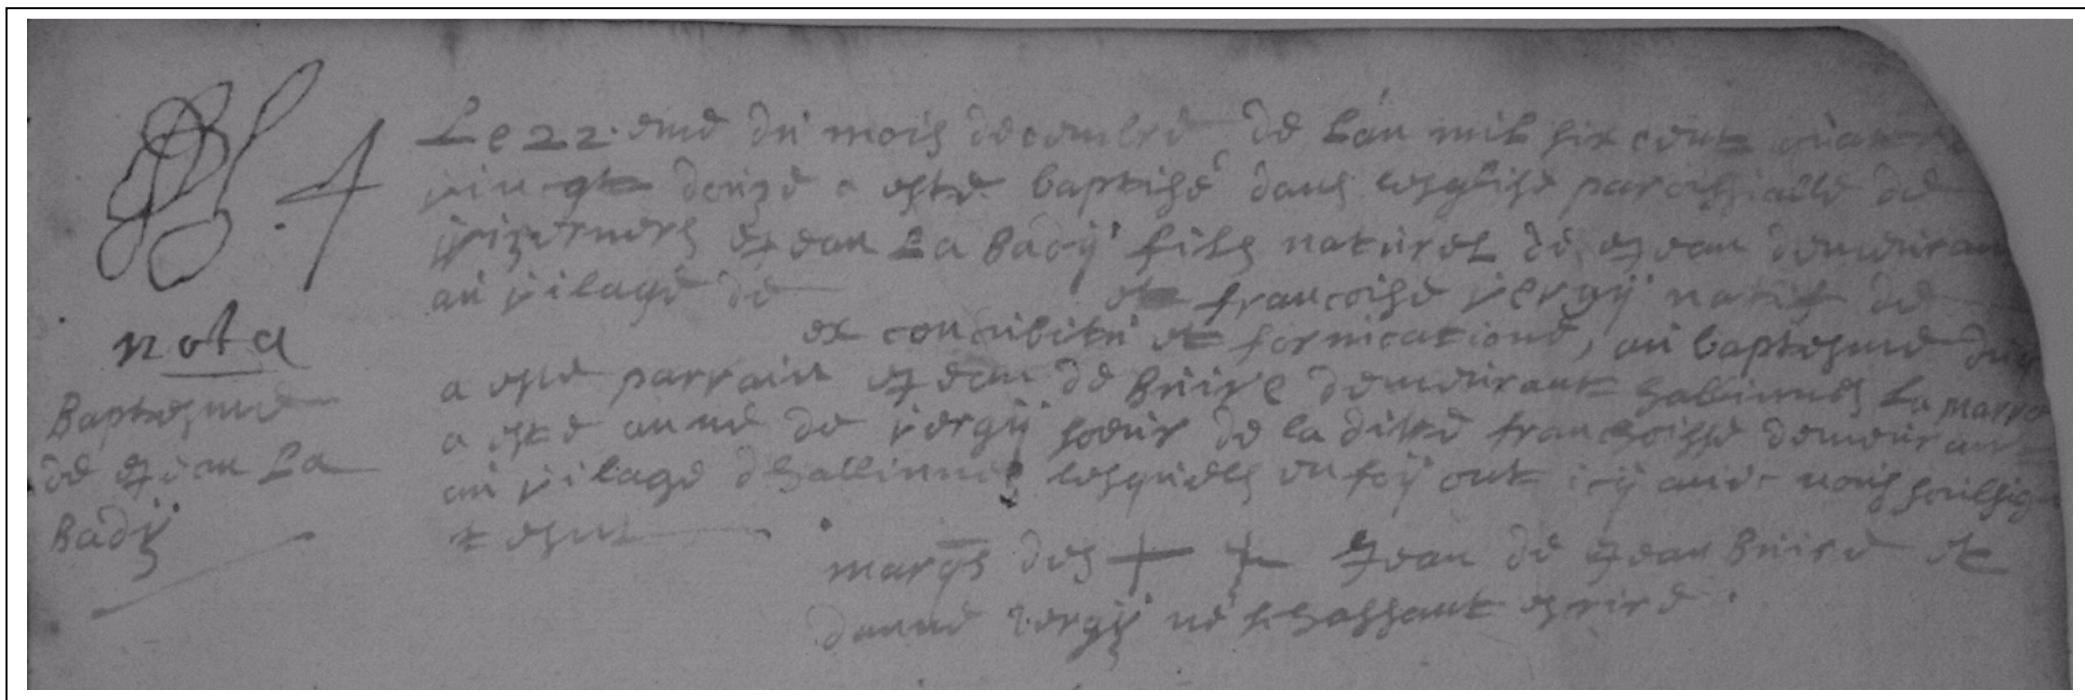 4
nota
Baptesme
de Jean La
Badÿ
Le 22. eme du mois decembre de l'an mil six cent quatre
vingt douze a esté baptisé dans l'esglise paroissialle de
Wizernes Jean La Badÿ fils naturel de Jean demeurant
au vilage de et francoise vergÿ natif de
ex concubitu et fornicatione, au baptesme
a esté parrain Jean de Buire demeurant hallinnes La marr
a esté anne de vergÿ soeur de la ditte francoisse demeurant
au vilage d'hallinnes lesquels en foÿ ont icÿ avec nous soulsig
marqs des + + Jean de Jean Buire et
danne vergÿ ne schassant esrire.